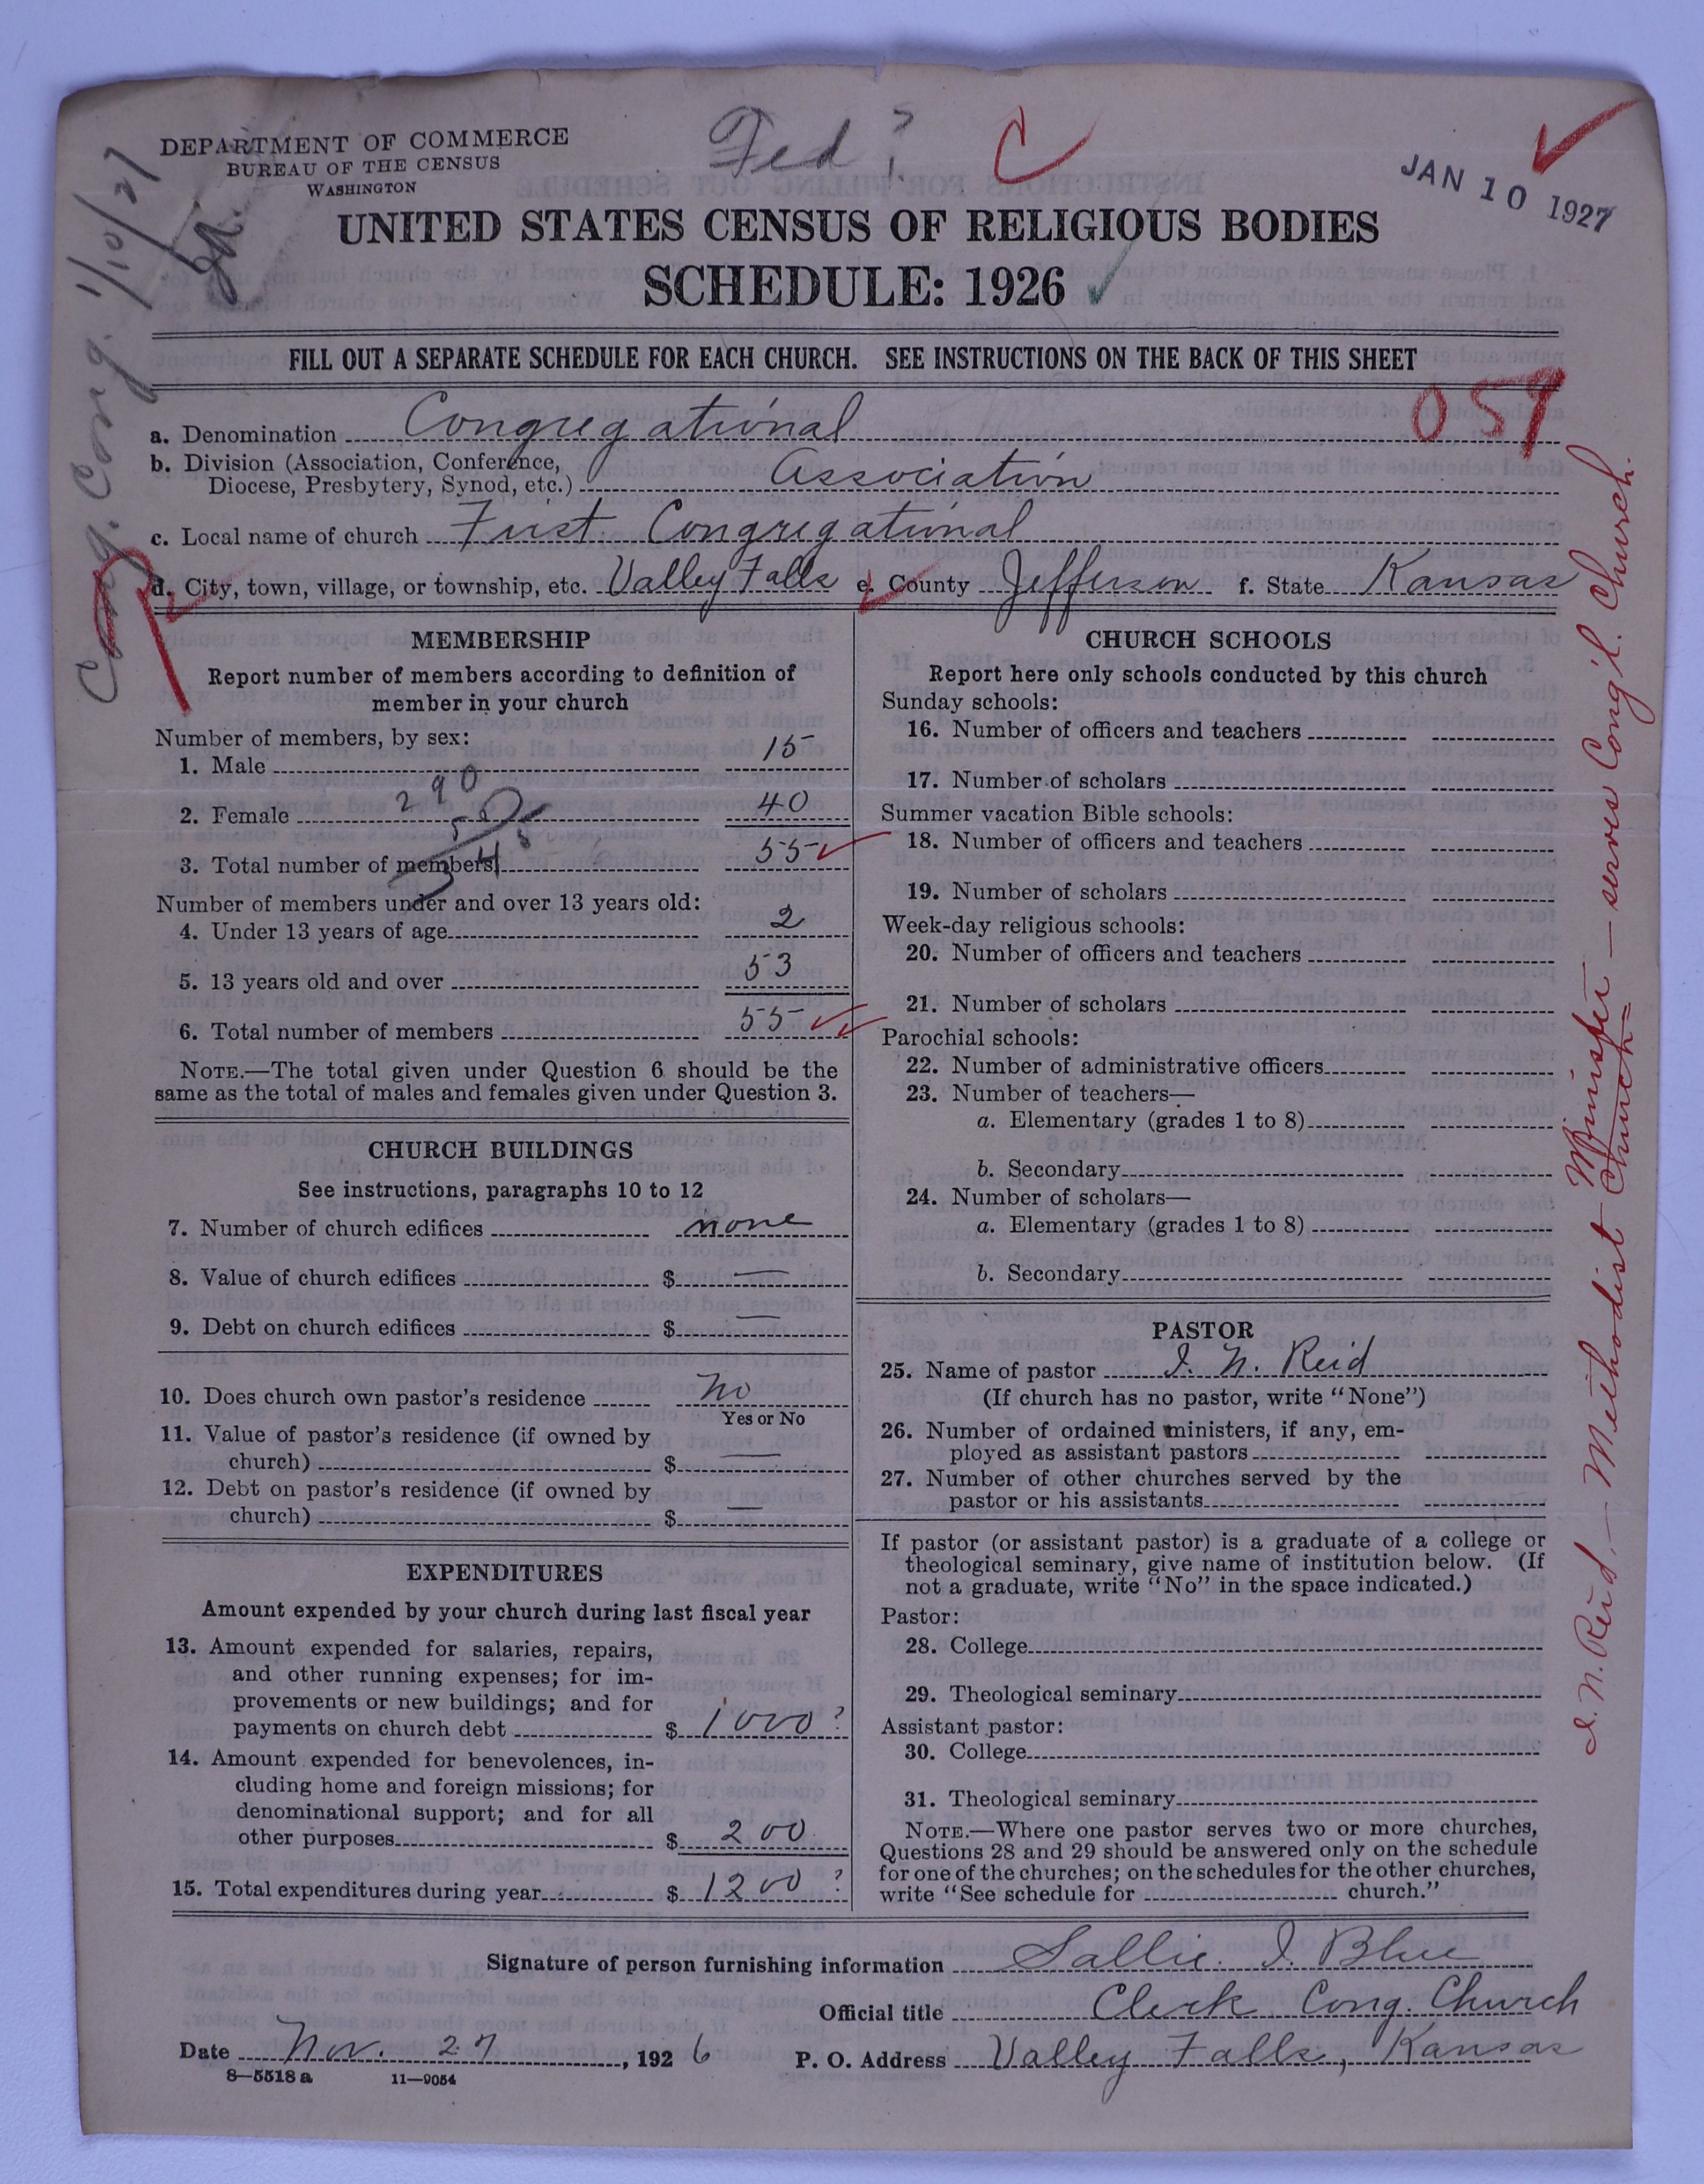 DEPARTMENT OF COMMERCE
BUREAU OF THE CENSUS
WASHINGTON
Fed?
C
JAN 10 1927
UNITED STATES CENSUS OF RELIGIOUS BODIES
SCHEDULE: 1926
Cong. Cong. 1/10/27
FILL OUT A SEPARATE SCHEDULE FOR EACH CHURCH. SEE INSTRUCTIONS ON THE BACK OF THIS SHEET
057
a. Denomination Congregational
b. Division (Association, Conference,
Diocese, Presbytery, Synod, etc.) Association
c. Local name of church First Congregational
d. City, town, village, or township, etc. Valley Falls e. County Jefferson f. State Kansas
MEMBERSHIP
Report number of members according to definition of
member in your church
Number of members, by sex:
1. Male 15
290
2. Female 40
55
3. Total number of members 55
Number of members under and over 13 years old:
4. Under 13 years of age 2
5. 13 years old and over 53
6. Total number of members 55
NOTE.—The total given under Question 6 should be the
same as the total of males and females given under Question 3.
CHURCH BUILDINGS
See instructions, paragraphs 10 to 12
7. Number of church edifices none
8. Value of church edifices $ —
9. Debt on church edifices $ —
10. Does church own pastor's residence No
Yes or No
11. Value of pastor's residence (if owned by
church) $ —
12. Debt on pastor's residence (if owned by
church) $ —
EXPENDITURES
Amount expended by your church during last fiscal year
13. Amount expended for salaries, repairs,
and other running expenses; for im-
provements or new buildings; and for
payments on church debt $ 1000?
14. Amount expended for benevolences, in-
cluding home and foreign missions; for
denominational support; and for all
other purposes $ 200
15. Total expenditures during year $ 1200?
CHURCH SCHOOLS
Report here only schools conducted by this church
Sunday schools:
16. Number of officers and teachers
17. Number of scholars
Summer vacation Bible schools:
18. Number of officers and teachers
19. Number of scholars
Week-day religious schools:
20. Number of officers and teachers
21. Number of scholars
Parochial schools:
22. Number of administrative officers
23. Number of teachers—
a. Elementary (grades 1 to 8)
b. Secondary
24. Number of scholars—
a. Elementary (grades 1 to 8)
b. Secondary
PASTOR
25. Name of pastor I. N. Reid
(If church has no pastor, write "None")
26. Number of ordained ministers, if any, em-
ployed as assistant pastors
27. Number of other churches served by the
pastor or his assistants
If pastor (or assistant pastor) is a graduate of a college or
theological seminary, give name of institution below. (If
not a graduate, write "No" in the space indicated.)
Pastor:
28. College
29. Theological seminary
Assistant pastor:
30. College
31. Theological seminary
NOTE.—Where one pastor serves two or more churches,
Questions 28 and 29 should be answered only on the schedule
for one of the churches; on the schedules for the other churches,
write "See schedule for church."
I. N. Reid, — Methodist Church Minister — serves Cong'l. Church.
Signature of person furnishing information Sallie I. Blue
Official title Clerk Cong. Church
Date Nov. 27, 1926 P. O. Address Valley Falls, Kansas
8—5518 a 11—9054